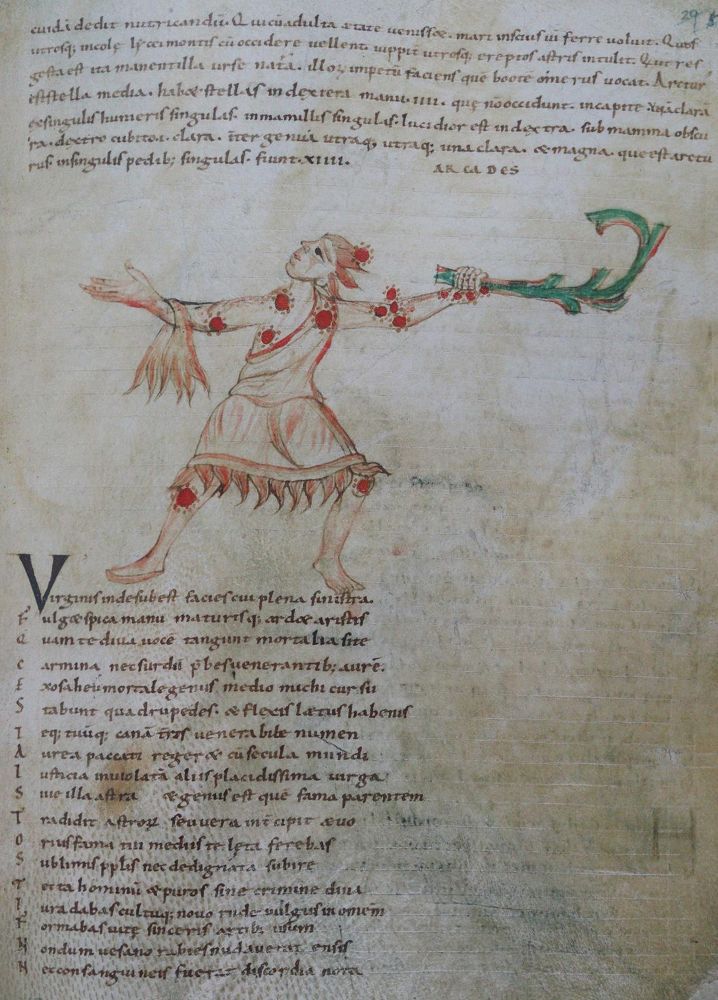 29
cuidā dedit nutricandū. Qui cū adulta ætate venissæ. mari inscius vi ferre voluit. Quos
utrosq; incolę lycei montis cū occidere vellent. iuppiter utrosq; ereptos astris intulit. Qui res
gesta est ita manentilla urse nata. illorū impetū faciens quē booten omerus vocat. Arctur
est stella media. habæ stellas in dextera manu. IIII. quę nō occidunt. in capite unā clarā
& singulis humeris singulas. in mamillis singulis. lucidior est in dextra. sub mamma obscu
ra. dextro cubito. I. clara. inter genua utraq; utraq; una clara. & magna. que est arctu
rus. in singulis pedib; singulas. fiunt. XIIII.
ARCADES
Virginis inde subest facies cui plena sinistra
Fulgæ spica manu maturisq; ardæ aristis
Quam te diva vocē tangunt mortalia si te
Carmina nec surdū p̄bes venerantib; aurē.
Exosa heu mortale genus medio michi cursu
Stabunt quadrupedes. & flexis lætus habenis
Teq; tuūq; canā terris venerabile numen
Aurea paccati regeræ cū secula mundi
Iusticia inviolata aliis placidissima virga
Sive illa astra & genus est quē fama parentem
Tradidit astrorū seu vera intercipit ævo
Orius fama tui mediis te leta ferebas
Sublimis pplis nec dedignata subire
Tecta hominū & puros sine crimine diva
Iura dabas cultuq; novo rude vulgus in omem
Formabas vitę sinceris artib; usum
Nondum vesano rabies nudaverat ensis
Nec consanguineis fuerat discordia nota